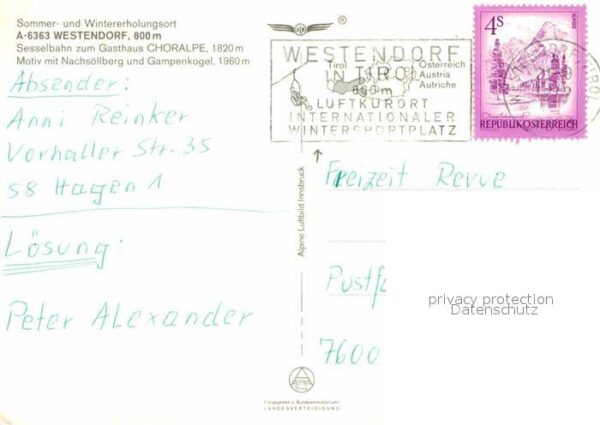 Sommer- und Wintererholungsort
A-6363 WESTENDORF, 800 m
Sesselbahn zum Gasthaus CHORALPE, 1820 m
Motiv mit Nachsöllberg und Gampenkogel, 1960 m
Absender:
Anni Reinker
Vorhaller Str. 35
58 Hagen 1
Lösung:
Peter Alexander
®
WESTENDORF
IN TIROL
800 m
LUFTKURORT
INTERNATIONALER
WINTERSPORTPLATZ
Tirol
Österreich
Austria
Autriche
4S
REPUBLIK ÖSTERREICH
Alpine Luftbild Innsbruck
Freizeit Revue
Postf
7600
privacy protection
Datenschutz
LANDESVERTEIDIGUNG